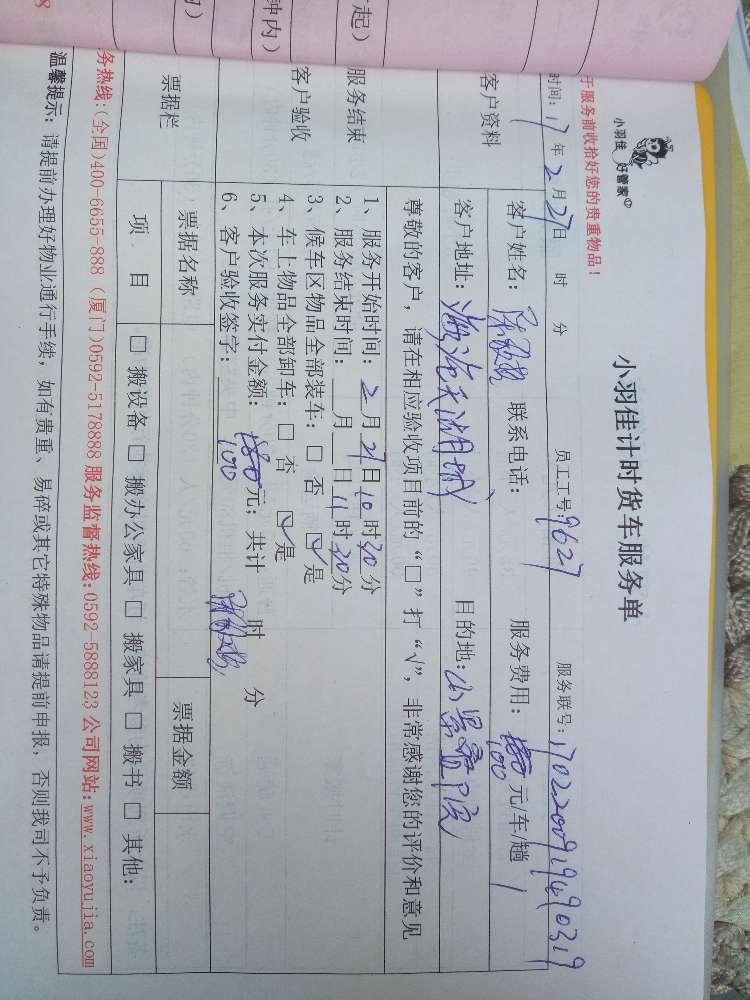 小羽佳 好管家
小羽佳计时货车服务单
于服务前收拾好您的贵重物品！
时间：17年2月27日 时 分 员工工号：9627 服务联号：
客户资料
客户姓名： 联系电话： 服务费用：100元/车/趟
客户地址： 天湖城 目的地：
尊敬的客户，请在相应验收项目前的“□”打“√”，非常感谢您的评价和意见
服务结束
客户验收
1、服务开始时间：2月27日10时30分
2、服务结束时间：__月__日11时30分
3、候车区物品全部装车：□ 否 ☑ 是
4、车上物品全部卸车：□ 否 ☑ 是
5、本次服务实付金额：180 100元；共计 时 分
6、客户验收签字：
票据栏
票据名称 票据金额
项 目 □ 搬设备 □ 搬办公家具 □ 搬家具 □ 搬书 □ 其他：
务热线：(全国)400-6655-888 (厦门)0592-5178888 服务监督热线：0592-5888123 公司网站：www.xiaoyujia.com
温馨提示：请提前办理好物业通行手续，如有贵重、易碎或其它特殊物品请提前申报，否则我司不予负责。
起）
钟内）